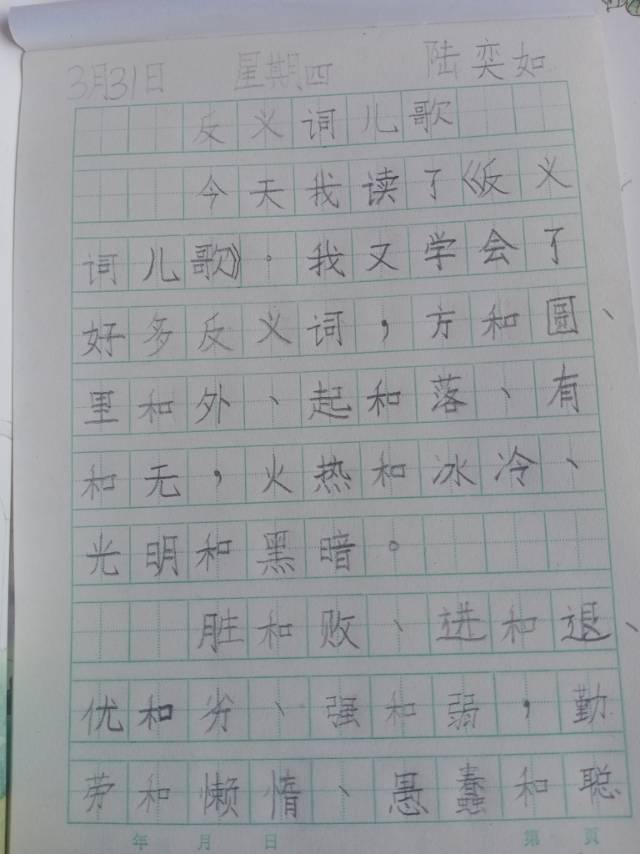 3月31日 星期四 陆奕如
反义词儿歌
今天我读了《反义
词儿歌》。我又学会了
好多反义词，方和圆、
里和外、起和落、有
和无，火热和冰冷、
光明和黑暗。
胜和败、进和退、
优和劣、强和弱，勤
劳和懒惰、愚蠢和聪
年 月 日 第 页